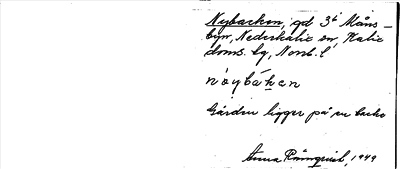 Nybacken, gd 3⁶ Måns-
byn, Nederkalix sn, Kalix
doms. lg, Norrb. l
nöybáken
Gården ligger på en backe
Anna Rönnqvist, 1949